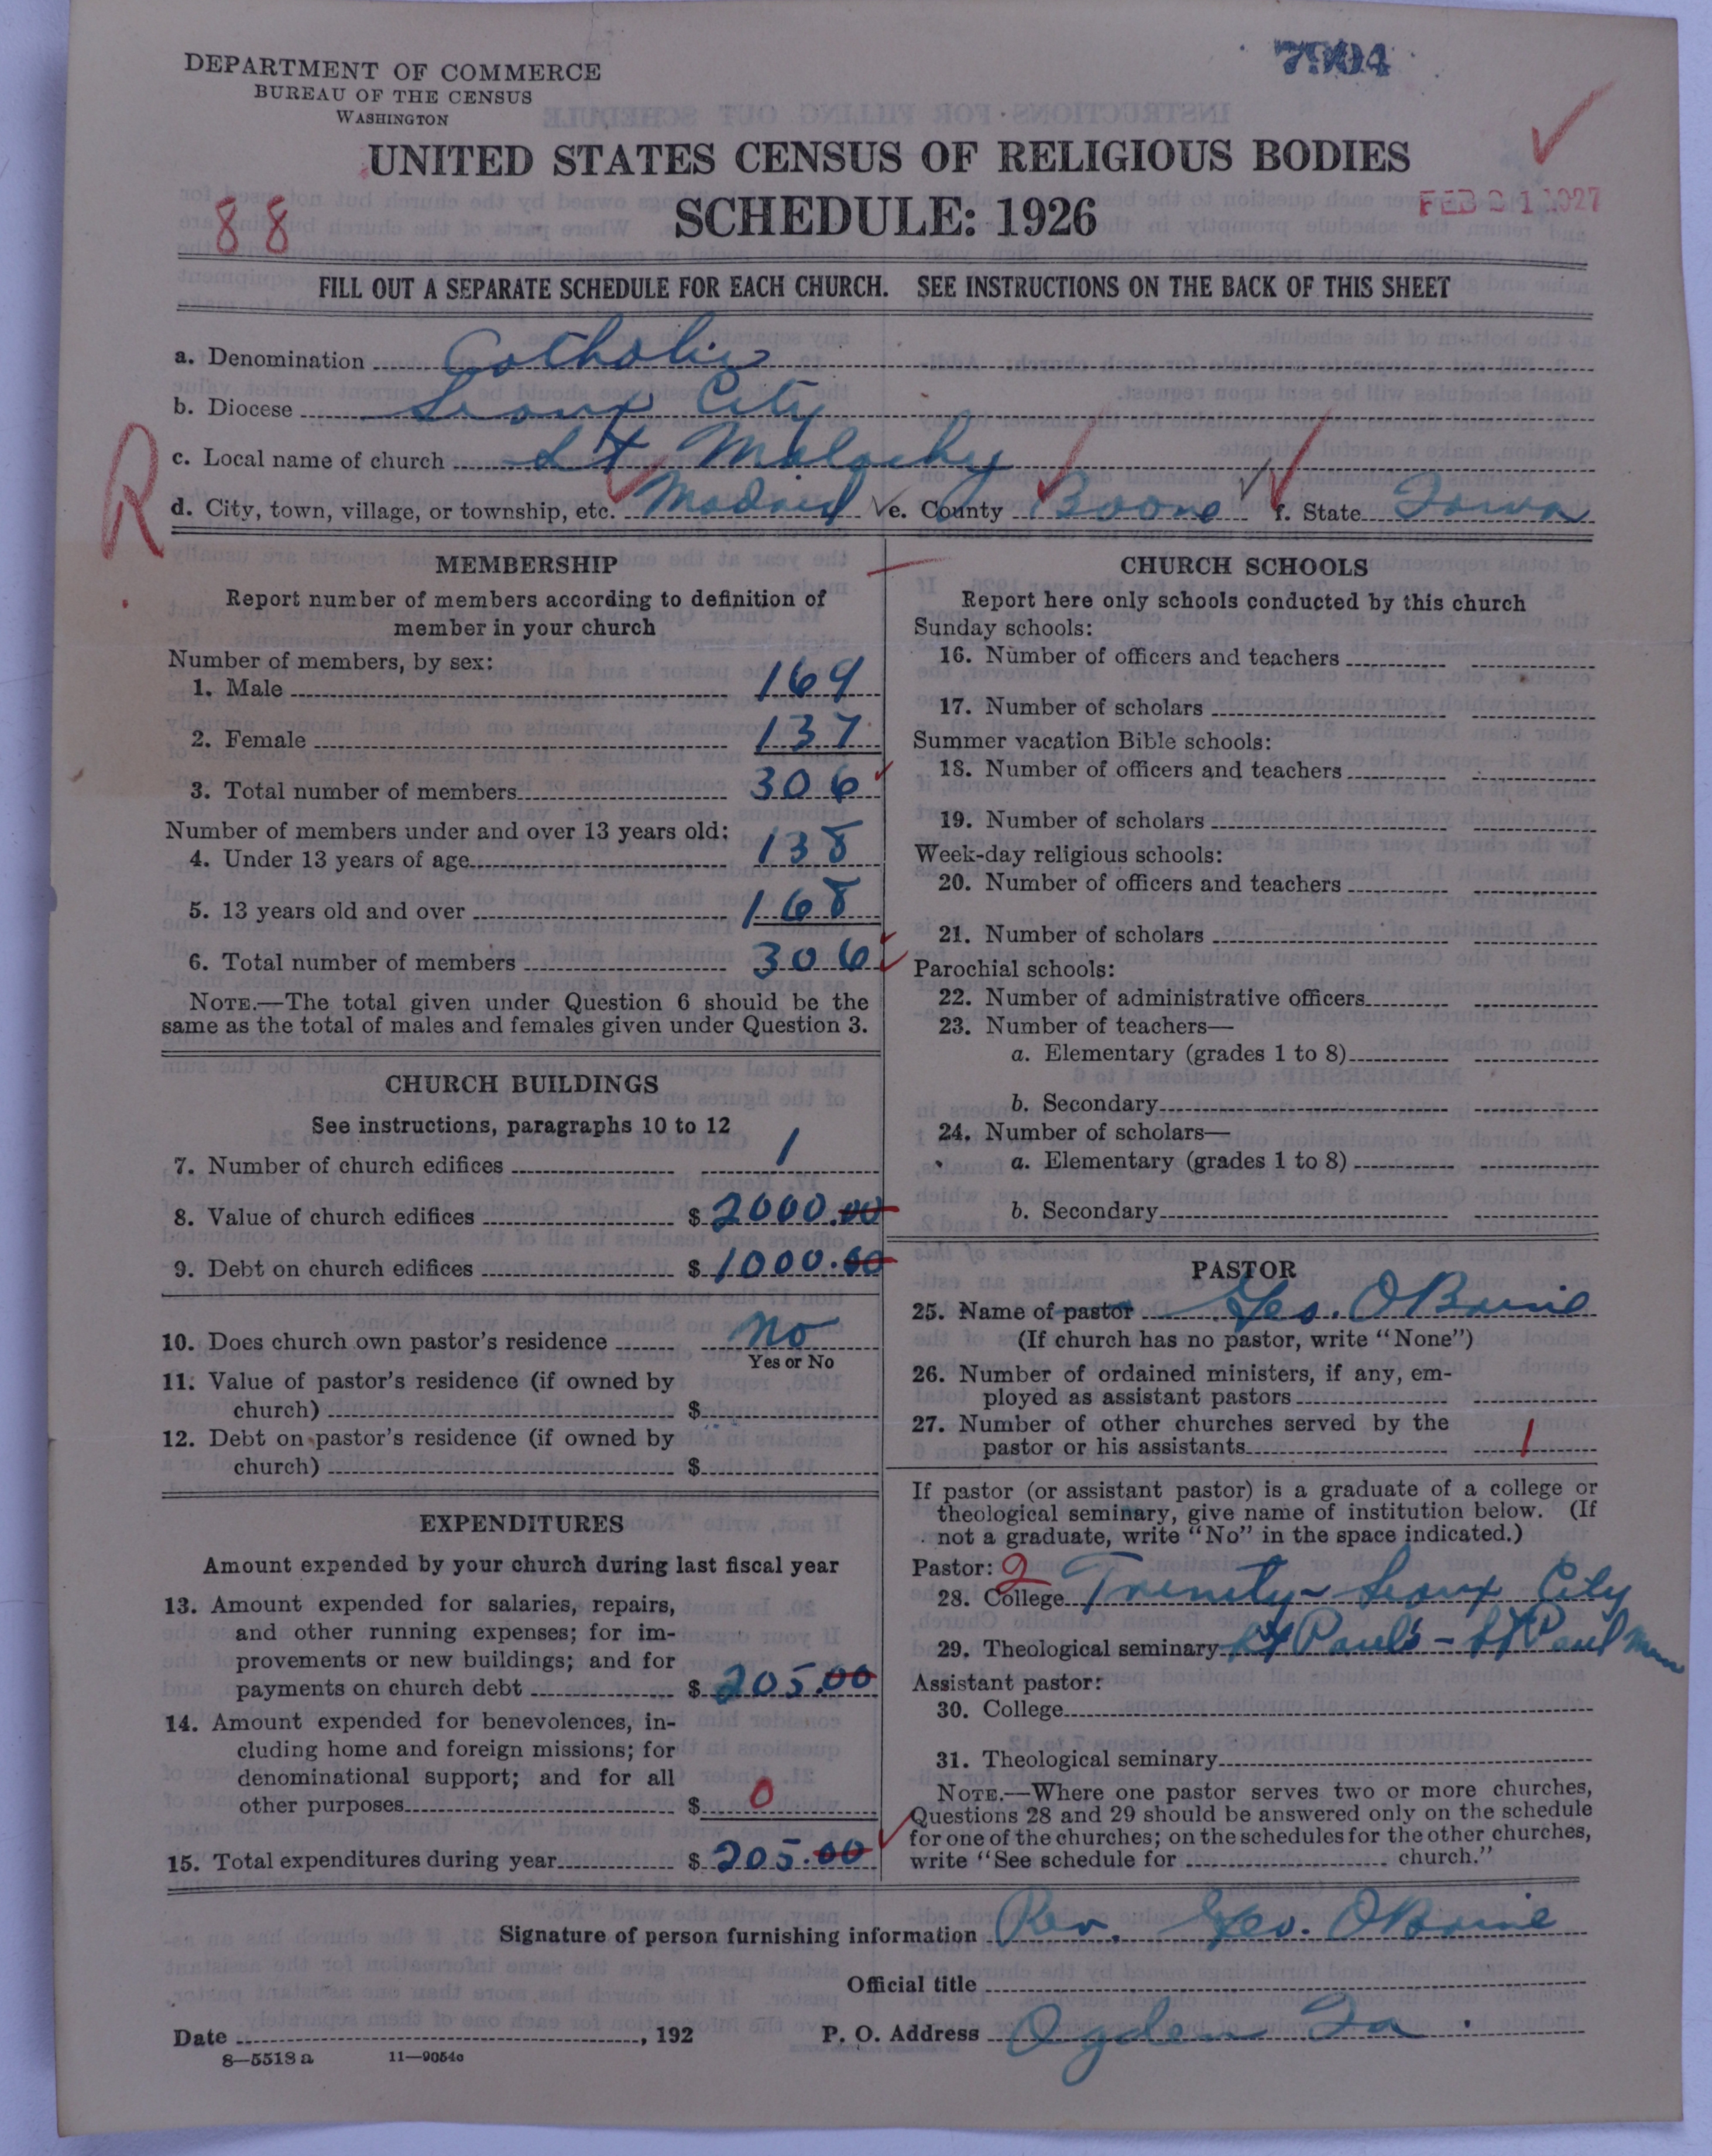 DEPARTMENT OF COMMERCE
BUREAU OF THE CENSUS
WASHINGTON
UNITED STATES CENSUS OF RELIGIOUS BODIES
SCHEDULE: 1926
88
FILL OUT A SEPARATE SCHEDULE FOR EACH CHURCH. SEE INSTRUCTIONS ON THE BACK OF THIS SHEET
a. Denomination Catholic
b. Diocese Sioux City
c. Local name of church St Malachy
R
d. City, town, village, or township, etc. Madrid e. County Boone f. State Iowa
MEMBERSHIP
Report number of members according to definition of
member in your church
Number of members, by sex:
1. Male 169
2. Female 137
3. Total number of members 306
Number of members under and over 13 years old:
4. Under 13 years of age 138
5. 13 years old and over 168
6. Total number of members 306
NOTE.—The total given under Question 6 should be the
same as the total of males and females given under Question 3.
CHURCH BUILDINGS
See instructions, paragraphs 10 to 12
7. Number of church edifices 1
8. Value of church edifices $ 2000.00
9. Debt on church edifices $ 1000.00
10. Does church own pastor's residence No
Yes or No
11. Value of pastor's residence (if owned by
church) $
12. Debt on pastor's residence (if owned by
church) $
EXPENDITURES
Amount expended by your church during last fiscal year
13. Amount expended for salaries, repairs,
and other running expenses; for im-
provements or new buildings; and for
payments on church debt $ 205.00
14. Amount expended for benevolences, in-
cluding home and foreign missions; for
denominational support; and for all
other purposes $ 0
15. Total expenditures during year $ 205.00
CHURCH SCHOOLS
Report here only schools conducted by this church
Sunday schools:
16. Number of officers and teachers
17. Number of scholars
Summer vacation Bible schools:
18. Number of officers and teachers
19. Number of scholars
Week-day religious schools:
20. Number of officers and teachers
21. Number of scholars
Parochial schools:
22. Number of administrative officers
23. Number of teachers—
a. Elementary (grades 1 to 8)
b. Secondary
24. Number of scholars—
a. Elementary (grades 1 to 8)
b. Secondary
PASTOR
25. Name of pastor Geo. O'Brine
(If church has no pastor, write "None")
26. Number of ordained ministers, if any, em-
ployed as assistant pastors
27. Number of other churches served by the
pastor or his assistants 1
If pastor (or assistant pastor) is a graduate of a college or
theological seminary, give name of institution below. (If
not a graduate, write "No" in the space indicated.)
Pastor: 2
28. College Trinity - Sioux City
29. Theological seminary St Paul's - St Paul Minn
Assistant pastor:
30. College
31. Theological seminary
NOTE.—Where one pastor serves two or more churches,
Questions 28 and 29 should be answered only on the schedule
for one of the churches; on the schedules for the other churches,
write "See schedule for church."
Signature of person furnishing information Rev. Geo. O'Brine
Official title
Date , 192
P. O. Address Ogden Ia.
8—5518 a 11—9054c